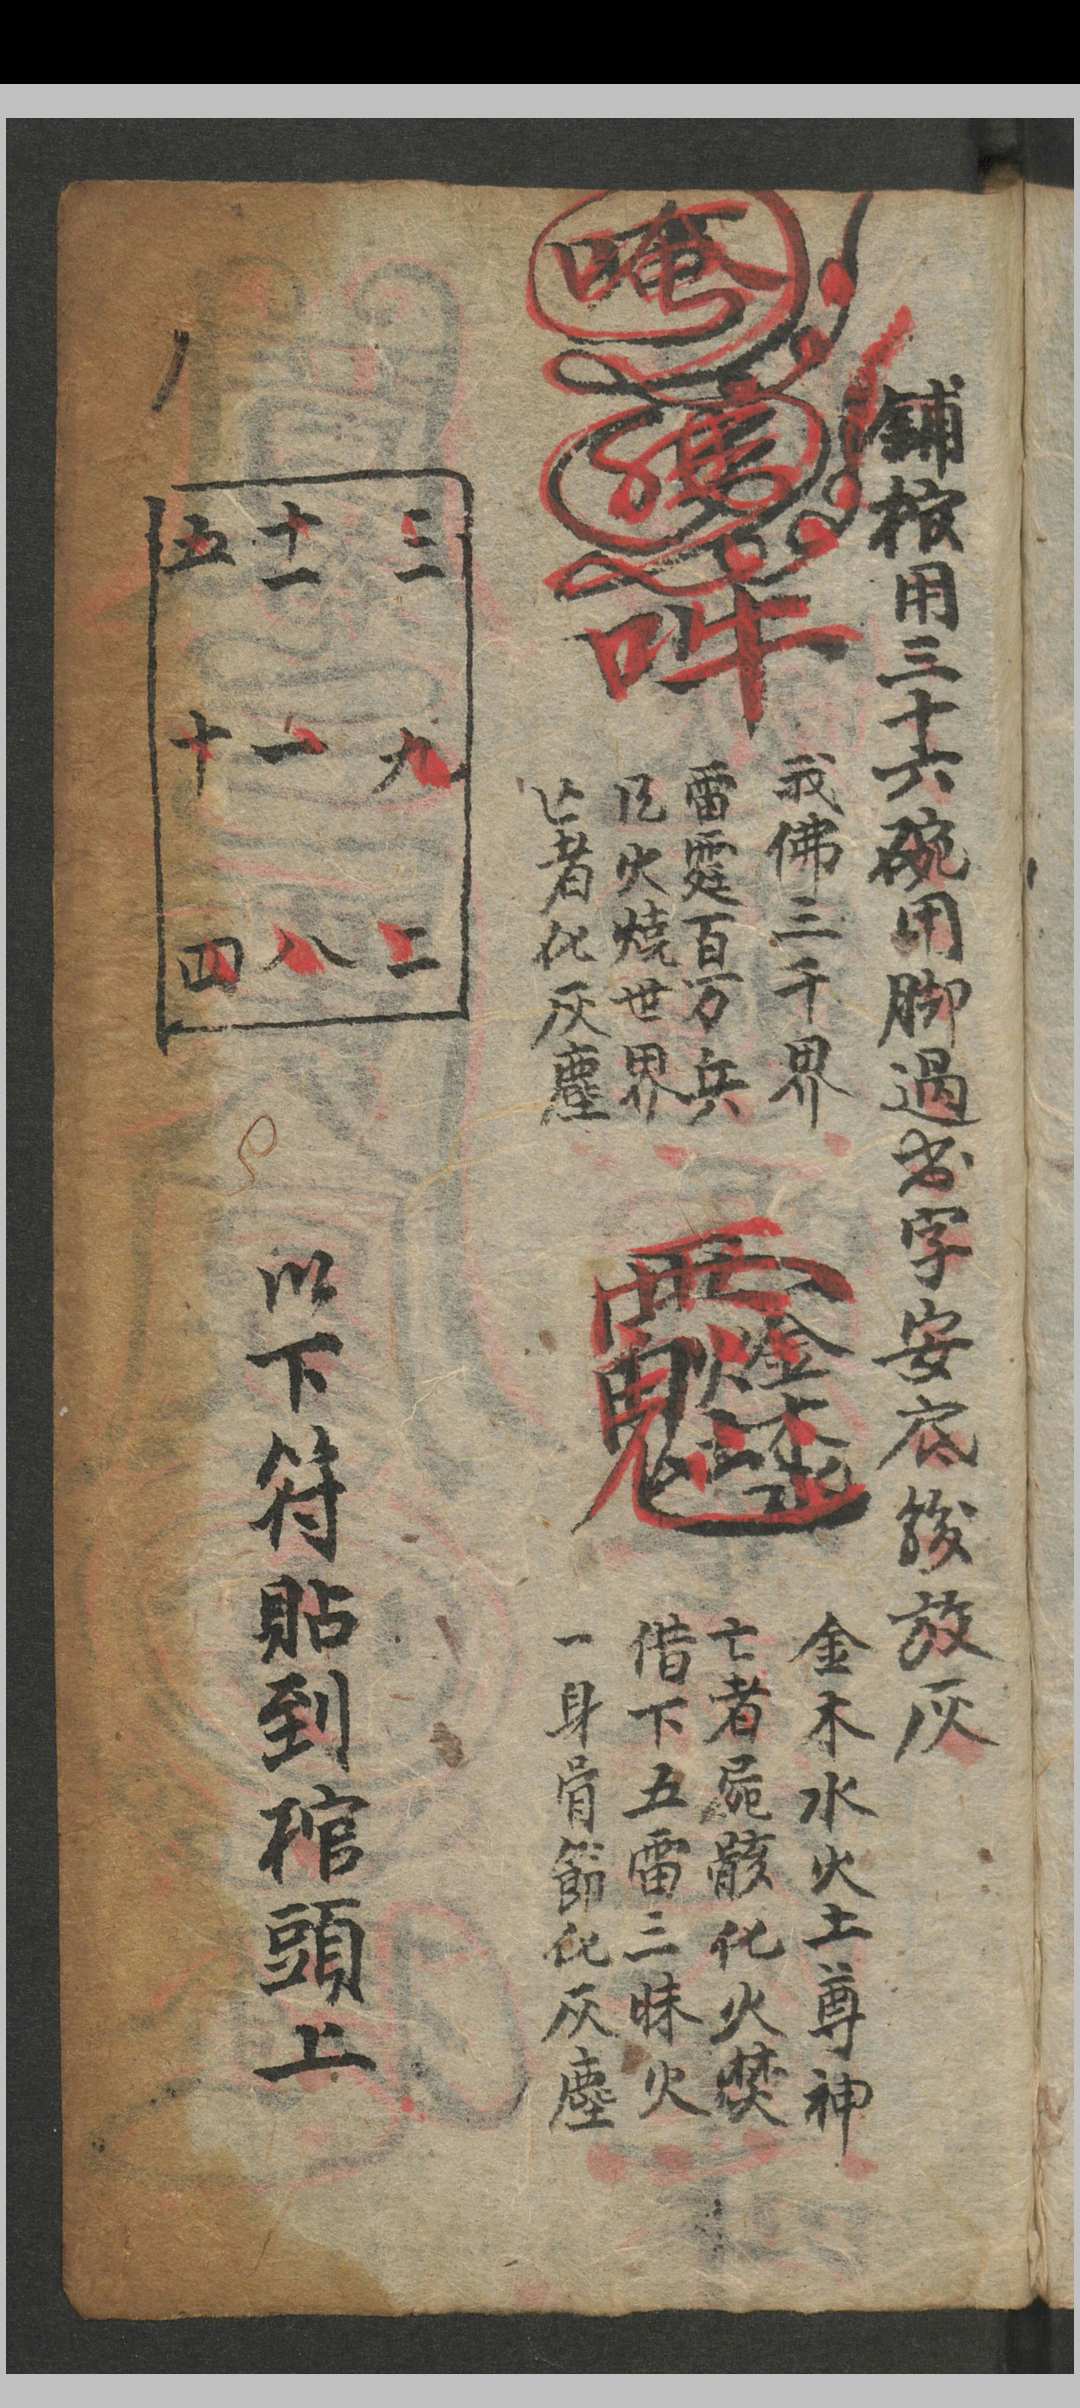 鋪棺用三十六碗用脚過书字安底後放灰
唵
吽
我佛三千界
雷霆百万兵
火燒世界
亡者化灰塵
金木水火土尊神
亡者屍骸化火焚
借下五雷三昧火
一身骨節化灰塵
三 九 二
十一 一 八
五 十 四
以下符貼到棺頭上